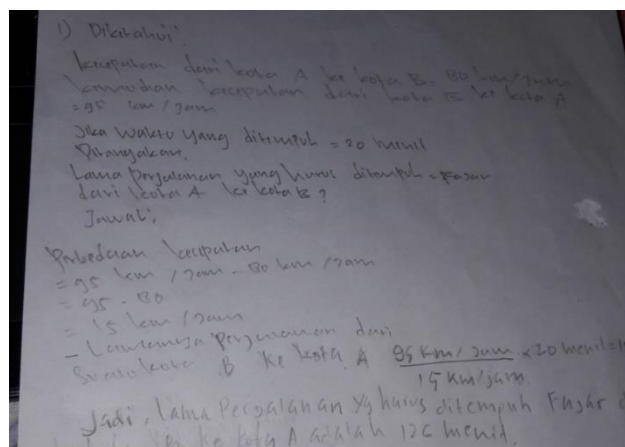 1) Diketahui:
kecepatan dari kota A ke kota B = 80 km/jam
kemudian kecepatan dari kota B ke kota A
= 95 km/jam
Jika waktu yang ditempuh = 20 menit
Ditanyakan:
Lama Perjalanan yang harus ditempuh Fajar
dari kota A ke kota B ?
Jawab:
Perbedaan kecepatan
= 95 km /jam - 80 km /jam
= 95 - 80
= 15 km /jam
- Lamanya Perjalanan dari
kota B ke kota A 95 km/jam × 20 menit =
15 km/jam
Jadi, lama Perjalanan yg harus ditempuh Fajar
ke kota A adalah 126 menit